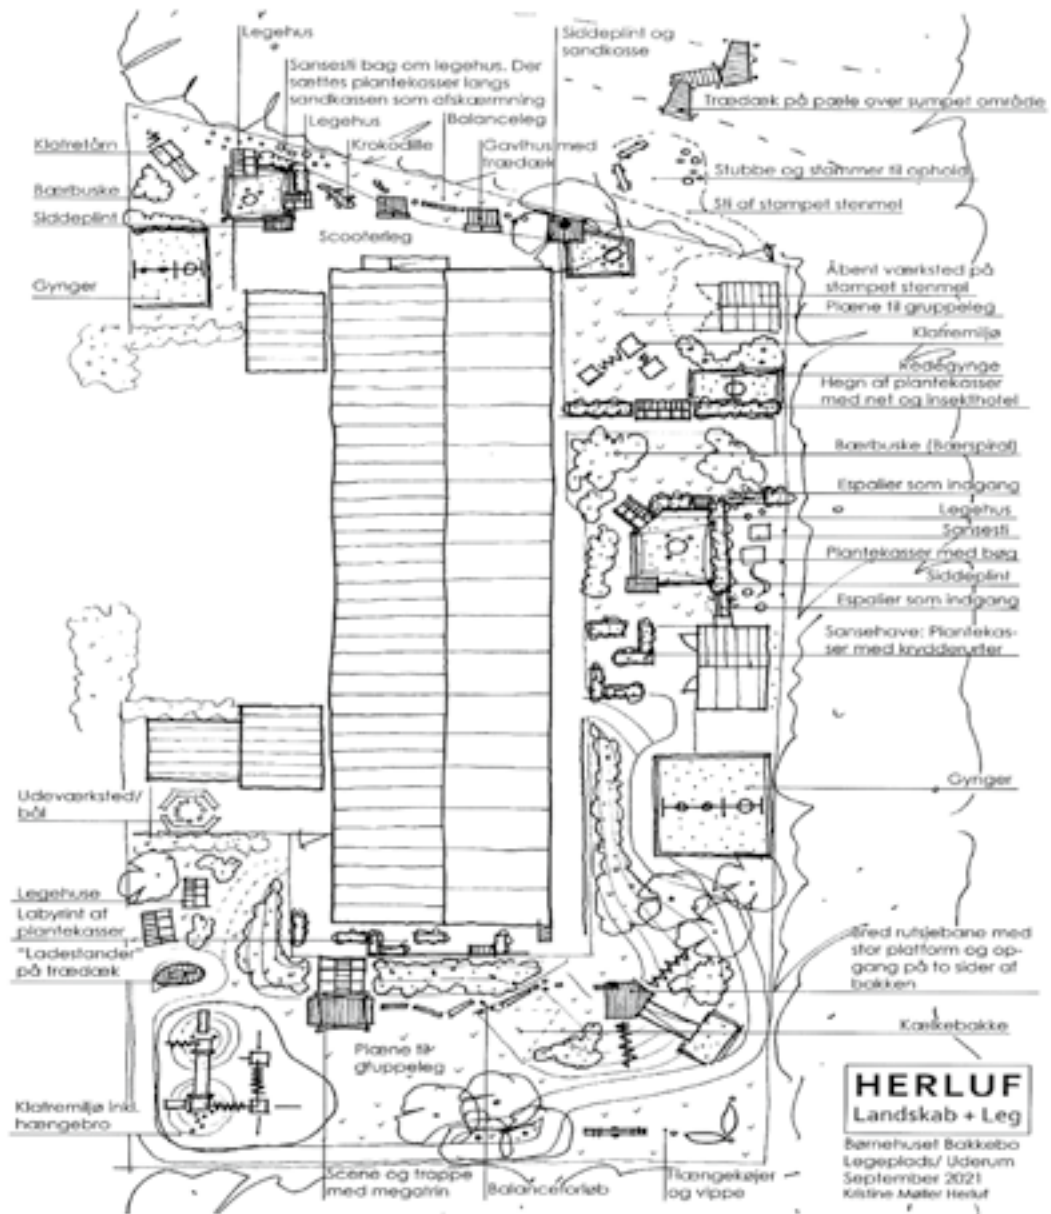 Legehus
Sansesti bag om legehus. Der
sættes plantekasser langs
sandkassen som afskærmning
Siddeplint og
sandkasse
Legehus
Balanceleg
Krokodille
Gavlhus med
trædæk
Trædæk på pæle over sumpet område
Klatretårn
Bærbuske
Siddeplint
Stubbe og stammer til ophold
Sti af stampet stenmel
Scooterleg
Gynger
Åbent værksted på
stampet stenmel
Plæne til gruppeleg
Klatremiljø
Redegynge
Hegn af plantekasser
med net og insekthotel
Bærbuske (Bærspiral)
Espalier som indgang
Legehus
Sansesti
Plantekasser med bøg
Siddeplint
Espalier som indgang
Sansehave: Plantekas-
ser med krydderurter
Gynger
Udeværksted/
bål
Legehuse
Labyrint af
plantekasser
"Ladestander"
på trædæk
Bred rutsjebane med
stor platform og op-
gang på to sider af
bakken
Kælkebakke
Plæne til
gruppeleg
Klatremiljø inkl.
hængebro
Scene og trappe
med megatrin
Balanceforløb
Hængekøjer
og vippe
HERLUF
Landskab + Leg
Børnehuset Bakkebo
Legeplads/ Uderum
September 2021
Kristine Møller Herluf